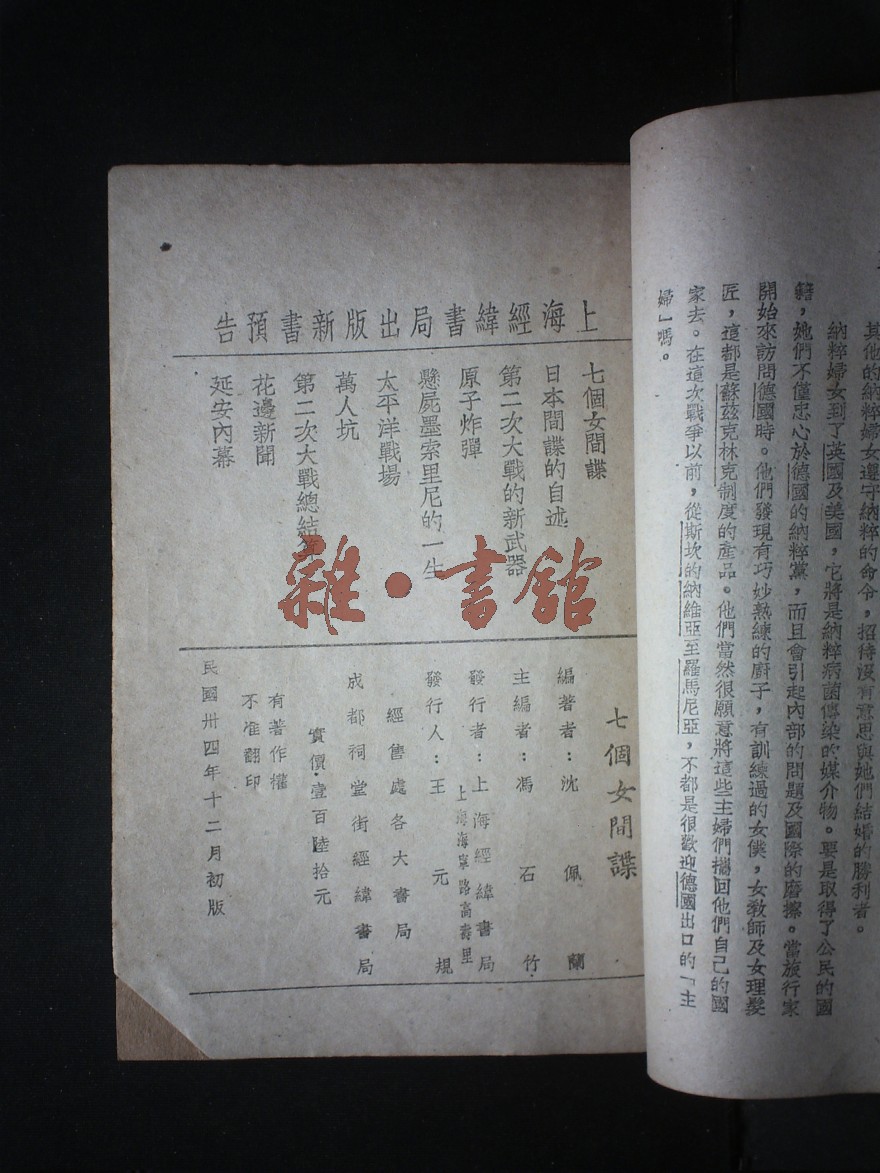 其他的納粹婦女遵守納粹的命令，招待沒有意思與她們結婚的勝利者。
納粹婦女到了英國及美國，它將是納粹病菌傳染的媒介物。要是取得了公民的國
籍，她們不僅忠心於德國的納粹黨，而且會引起內部的問題及國際的磨擦。當旅行家
開始來訪問德國時。他們發現有巧妙熟練的廚子，有訓練過的女僕，女教師及女理髮
匠，這都是蘇茲克林克制度的產品。他們當然很願意將這些主婦們攜回他們自己的國
家去。在這次戰爭以前，從斯坎的納維亞至羅馬尼亞，不都是很歡迎德國出口的「主
婦」嗎。
上海經緯書局出版新書預告
七個女間諜
日本間諜的自述
第二次大戰的新武器
原子炸彈
懸屍墨索里尼的一生
太平洋戰場
萬人坑
第二次大戰總結算
花邊新聞
延安內幕
七個女間諜
編著者：沈佩蘭
主編者：馮石竹
發行者：上海經緯書局
上海海寧路高壽里
發行人：王元規
經售處各大書局
成都祠堂街經緯書局
實價·壹百陸拾元
有著作權
不准翻印
民國卅四年十二月初版
雜·書館